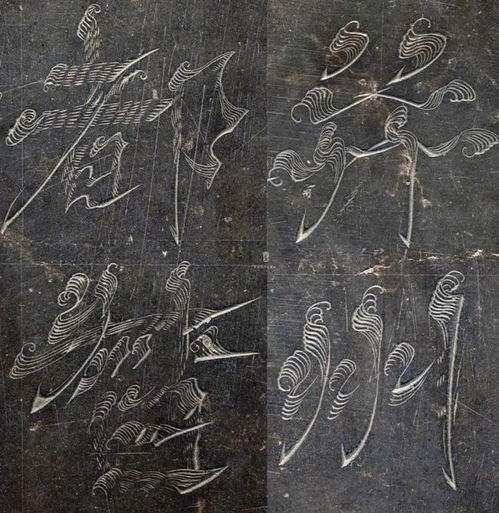 并州
都督